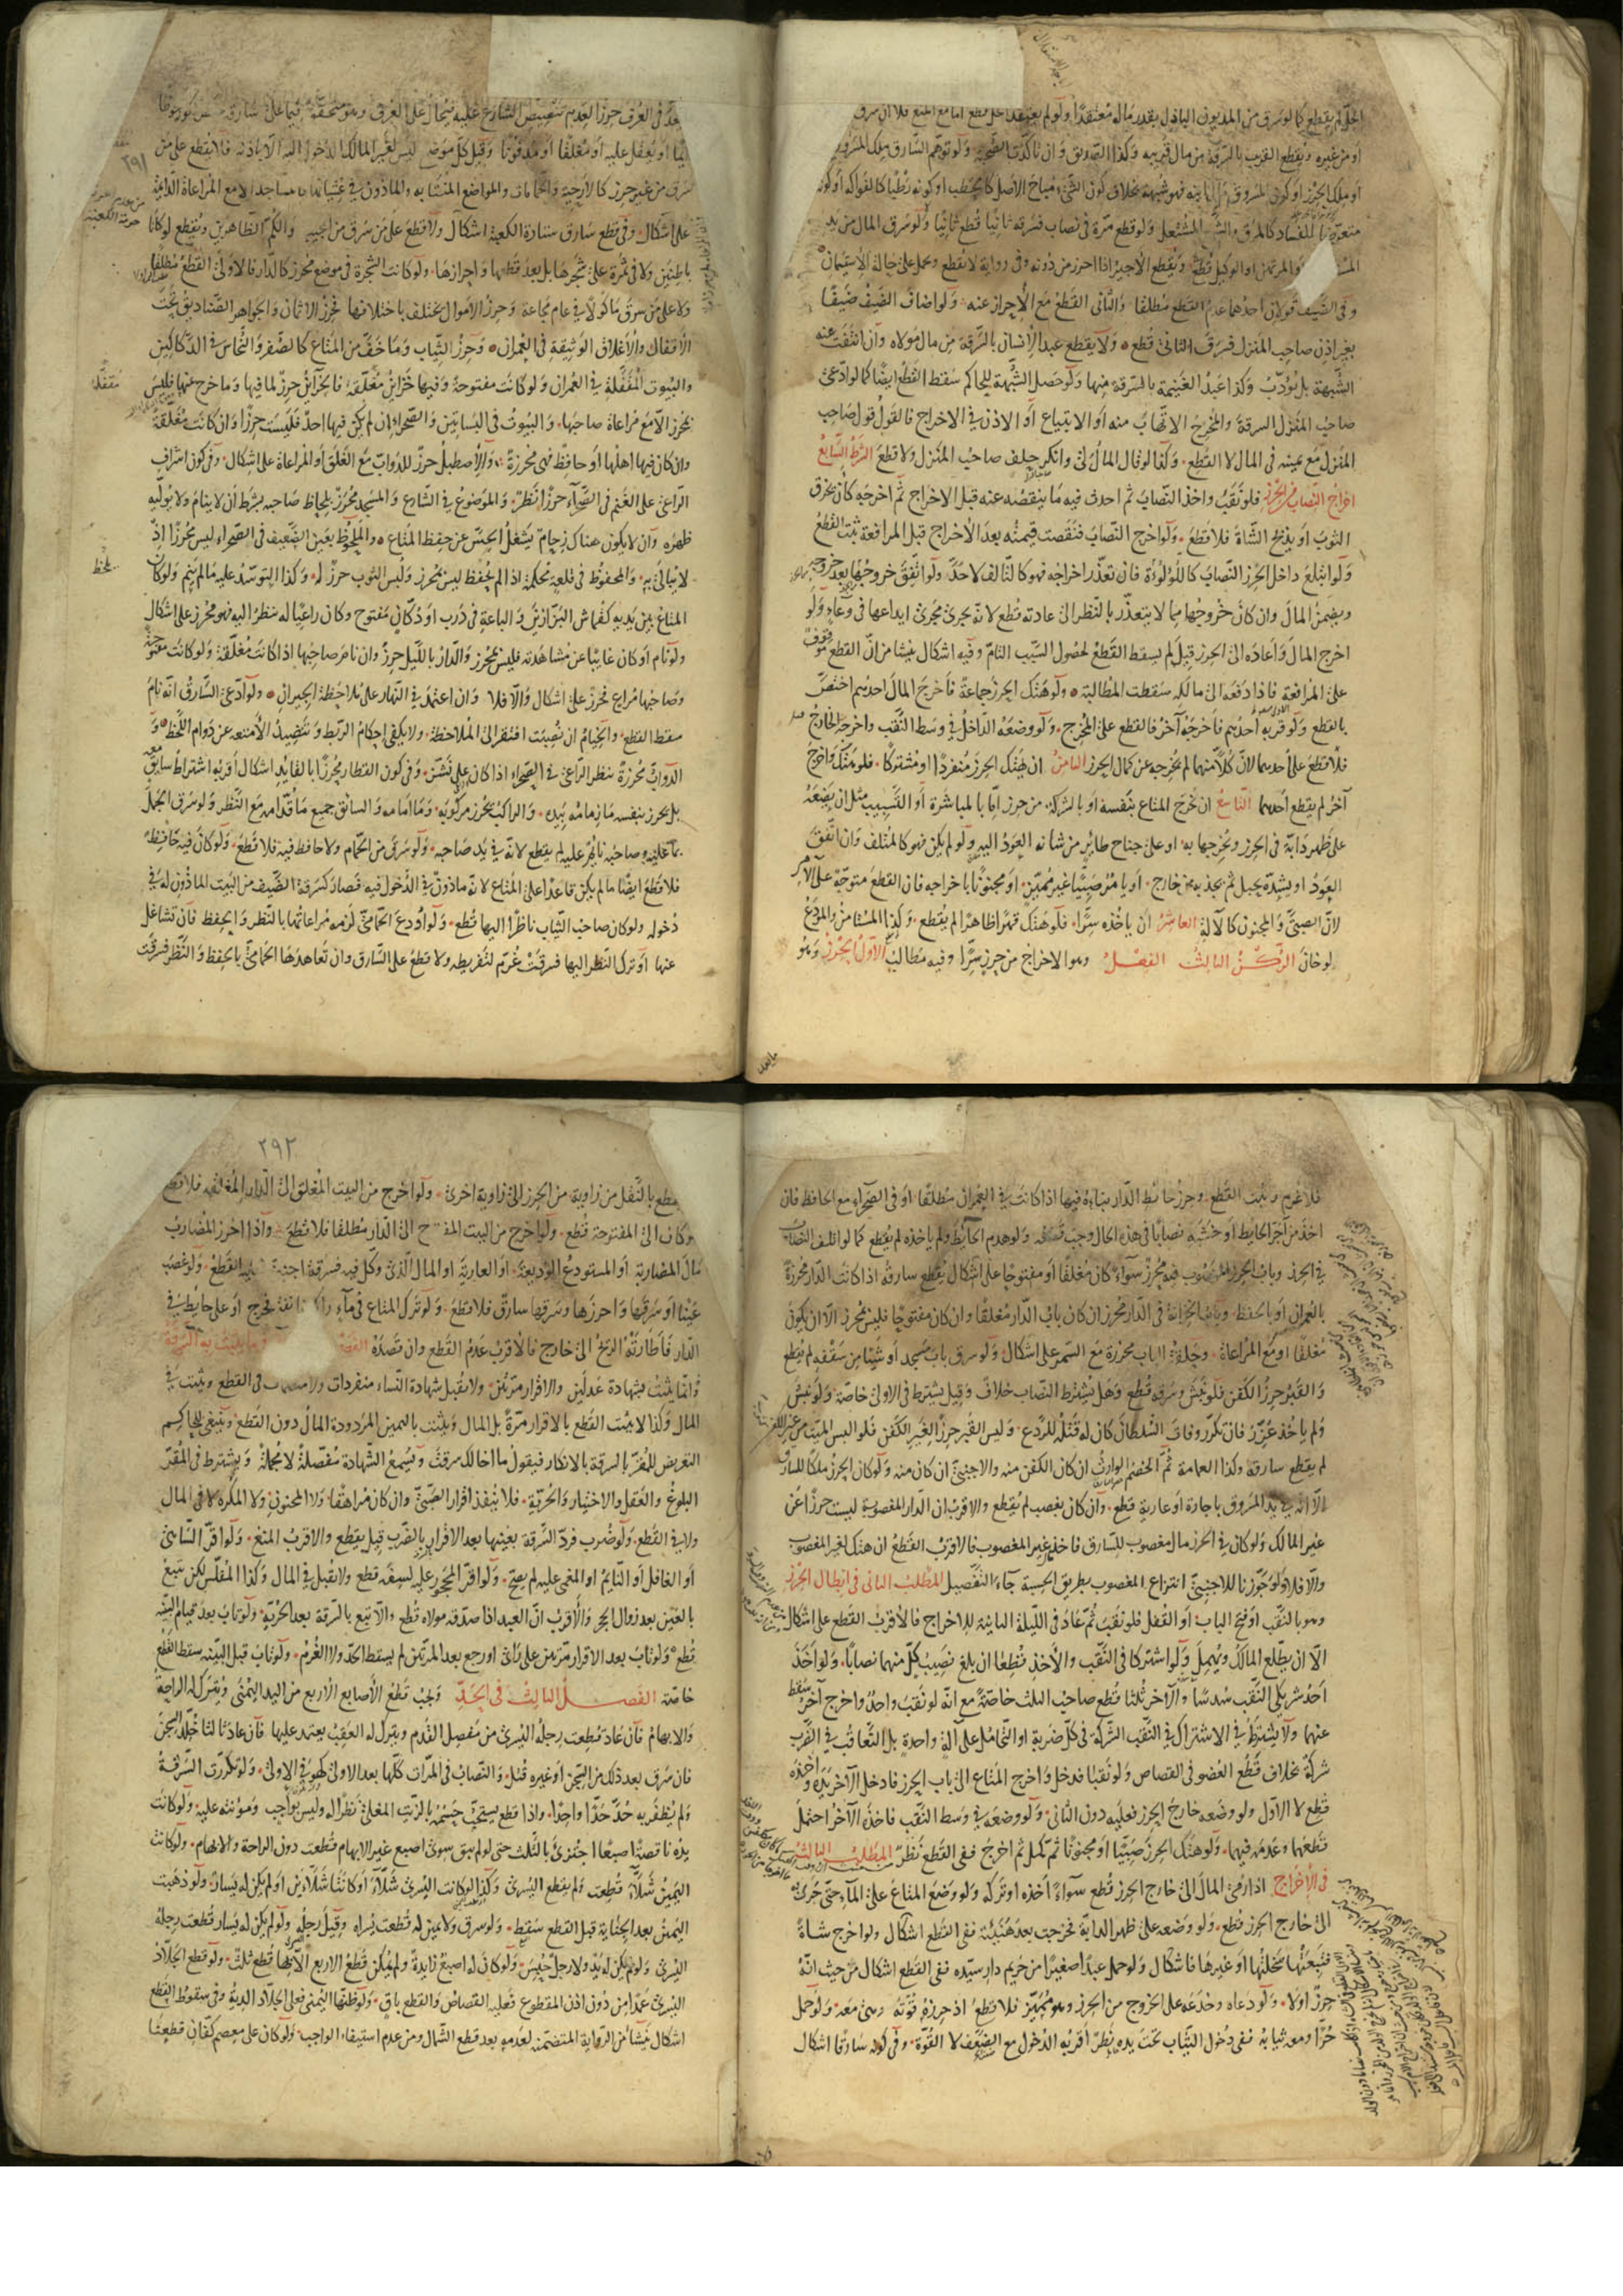 الحل لم يقطع كما لو سرق من المديون الباذل بقدر ماله معتقدا ولو لم يعتقد الحل قطع اما مع المنع فلا ان سرق
او من غيره ويقطع القريب بالسرقة من مال قريبه وكذا الصديق وان تاكدت الصحبة ولو توهم السارق ملك المسروق
او ملك الحرز او كون المسروق مال ابنه فهو شبهة بخلاف كون الشيء مباح الاصل كالحطب او كونه رطبا كالفواكه او كونه
متعرضا للفساد كالمرق والشمع المشتعل ولو قطع مرة في نصاب فسرقه ثانيا قطع ثانيا ولو سرق المال من يد
او المرتهن او الوكيل قطع ويقطع الاجير اذا احرز من دونه وفي رواية لا يقطع وتحمل على حالة الاستيمان
وفي الضيف قولان احدهما عدم القطع مطلقا والثاني القطع مع الاحراز عنه ولو اضاف الضيف ضيفا
بغير اذن صاحب المنزل فسرق الثاني قطع ولا يقطع عبد الانسان بالسرقة من مال مولاه وان انتفت عنه
الشبهة بل يؤدب وكذا عبد الغنيمة بالسرقة منها ولو حصل الشبهة للحاكم سقط القطع ايضا كما لو ادعى
صاحب المنزل السرقة والمخرج الاتهاب منه او الابتياع او الاذن في الاخراج فالقول قول صاحب
المنزل مع يمينه في المال لا القطع وكذا لو قال المال لي وانكر حلف صاحب المنزل ولا قطع الشرط السابع
اخراج النصاب من الحرز فلو نقب واخذ النصاب ثم احدث فيه ما ينقصه عنه قبل الاخراج ثم اخرجه كان يخرق
الثوب او يذبح الشاة فلا قطع ولو اخرج النصاب فنقصت قيمته بعد الاخراج قبل المرافعة ثبت القطع
ولو ابتلع داخل الحرز النصاب كاللؤلؤة فان تعذر اخراجه فهو كالتالف لا حد ولو اتفق خروجها بعد خروجه
ويضمن المال وان كان خروجها مما لا يتعذر بالنظر الى عادته قطع لانه يجري مجرى ايداعها في وعاء ولو
اخرج المال واعاده الى الحرز قيل لم يسقط القطع لحصول السبب التام وفيه اشكال ينشا من ان القطع موقوف
على المرافعة فاذا دفعه الى مالكه سقطت المطالبة ولو هتك الحرز جماعة فاخرج المال احدهم اختص
بالقطع ولو قربه احدهم فاخرجه آخر فالقطع على المخرج ولو وضعه الداخل في وسط النقب واخرجه الخارج
فلا قطع على احدهما لان كلا منهما لم يخرجه عن كمال الحرز الثامن ان يهتك الحرز منفردا او مشتركا فلو هتك واخرج
آخر لم يقطع احدهما التاسع ان يخرج المتاع بنفسه او بالشركة من حرز اما بالمباشرة او التسبيب مثل ان يضعه
على ظهر دابة في الحرز ويخرجها به او على جناح طائر من شانه العود اليه ولو لم يكن فهو كالمتلف وان اتفق
العود او يشده بحبل ثم يجذبه من خارج او يامر صبيا غير مميز او مجنونا باخراجه فان القطع متوجه على الآمر
لان الصبي والمجنون كالآلة العاشر ان ياخذه سرا فلو هتك قهرا ظاهرا لم يقطع وكذا المستامن والمودع
لو خان الركن الثالث الفصل وهو الاخراج من حرز سرا وفيه مطالب الاول الحرز وهو
يعد في العرف حرزا لعدم تنصيص الشارع عليه فيحال على العرف وهو متحقق فيما على سارقه
ايما او يقفل عليه او مغلقا او مدفونا وقيل كل موضع ليس لغير المالك الدخول اليه الا باذنه فلا يقطع على من
سرق من غير حرز كالارحية والحمامات والمواضع المنتابه والماذون في غشيانها كالمساجد الا مع المراعاة الدائمة
على اشكال وفي قطع سارق ستارة الكعبة اشكال ولا قطع على من سرق من الجيب والكم الظاهرين ويقطع لو كانا
باطنين ولا في ثمرة على شجرها بل بعد قطعها واحرازها ولو كانت الشجرة في موضع محرز كالدار فالاولى القطع مطلقا
ولا على من سرق ماكولا في عام مجاعة وحرز الاموال يختلف باختلافها فحرز الاثمان والجواهر الصناديق تحت
الاقفال والاغلاق الوثيقة في العمران وحرز الثياب وما خف من المتاع كالصفر والنحاس في الدكاكين
والبيوت المقفلة في العمران ولو كانت مفتوحة وفيها خزائن مغلقة فالخزائن حرز لما فيها وما خرج عنها فليس
بمحرز الا مع مراعاة صاحبها والبيوت في البساتين والصحراء ان لم يكن فيها احد فليست حرزا وان كانت مغلقة
وان كان فيها اهلها او حافظ فهي محرزة والاصطبل حرز للدواب مع الغلق او المراعاة على اشكال وفي كون اشراف
الراعي على الغنم في الصحراء حرزا نظر والموضوع في الشارع والمسجد محرز بلحاظ صاحبه بشرط ان لا ينام ولا يوليه
ظهره وان لا يكون هناك زحام يشغل الحس عن حفظ المتاع والملحوظ بعين الضعيف في الصحراء ليس محرزا اذ
لا يبالى به والمحفوظ في قلعة محكمة اذا لم يحفظ ليس بمحرز وليس الثوب حرز له وكذا التوسد عليه ما لم ينم ولو كان
المتاع بين يديه كقماش البزازين والباعة في درب او دكان مفتوح وكان راعيا له بنظر اليه فهو محرز على اشكال
ولو نام او كان غايبا عن مشاهدته فليس بمحرز والدار بالليل حرز وان نام صاحبها اذا كانت مغلقة ولو كانت مفتوحة
وصاحبها مراع فحرز على اشكال والا فلا وان اعتمد في النهار على ملاحظة الجيران ولو ادعى السارق انه نام
سقط القطع والخيام ان نصبت افتقر الى الملاحظة ولا يكفي احكام الربط وتنضيد الامتعة عن دوام اللحظ و
الدواب محرزة بنظر الراعي في الصحراء اذا كان على نشز وفي كون القطار محرزا بالقائد اشكال اقربه اشتراط سايق معه
بل يحرز بنفسه ما زمامه بيده والراكب يحرز مركوبه وما امامه والسائق جميع ما قدامه مع النظر ولو سرق الجمل
بما عليه وصاحبه نائم عليه لم يقطع لانه في يد صاحبه ولو سرق من الحمام ولا حافظ فيه فلا قطع ولو كان فيه حافظ
فلا قطع ايضا ما لم يكن قاعدا على المتاع لانه ماذون في الدخول فيه فصار كسرقة الضيف من البيت الماذون له في
دخوله ولو كان صاحب الثياب ناظرا اليها قطع ولو اودع الحمامي لزمه مراعاتها بالنظر والحفظ فان تشاغل
عنها او ترك النظر اليها فسرقت غرم لتفريطه ولا قطع على السارق وان تعاهدها الحمامي بالحفظ والنظر فسرقت
فلا غرم ويثبت القطع وحرز حائط الدار بناؤه فيها اذا كانت في العمران مطلقا او في الصحراء مع الحافظ فان
اخذ من آجر الحائط او خشبه نصابا في هذه الحال وجب قطعه ولو هدم الحائط ولم ياخذه لم يقطع كما لو اتلف النصاب
في الحرز وباب الحرز المنصوب فيه محرز سواء كان مغلقا او مفتوحا على اشكال يقطع سارقه اذا كانت الدار محرزة
بالعمران او بالحفظ وباب الخزانة في الدار محرز ان كان باب الدار مغلقا وان كان مفتوحا فليس بمحرز الا ان يكون
مغلقا او مع المراعاة وحلقة الباب محرزة مع السمر على اشكال ولو سرق باب مسجد او شيئا من سقفه لم يقطع
والقبر حرز الكفن فلو نبش وسرقه قطع وهل يشترط النصاب خلاف وقيل يشترط في الاولى خاصة ولو نبش
ولم ياخذ عزر فان تكرر وفات السلطان كان له قتله للردع وليس القبر حرزا لغير الكفن فلو البس الميت من غير الكفن
لم يقطع سارقه وكذا العمامة ثم الخصم الوارث ان كان الكفن منه والاجنبي ان كان منه ولو كان الحرز ملكا للسارق
الا انه في يد المسروق باجارة او عارية قطع وان كان بغصب لم يقطع والاقرب ان الدار المغصوبة ليست حرزا عن
غير المالك ولو كان في الحرز مال مغصوب للسارق فاخذ غير المغصوب فالاقرب القطع ان هتك لغير المغصوب
والا فلا ولو جوزنا للاجنبي انتزاع المغصوب بطريق الحسبة جاء التفصيل المطلب الثاني في ابطال الحرز
وهو بالنقب او فتح الباب او القفل فلو نقب ثم عاد في الليلة الثانية للاخراج فالاقرب القطع على اشكال
الا ان يطلع المالك ويهمل ولو اشتركا في النقب والاخذ قطعا ان بلغ نصيب كل منهما نصابا ولو اخذ
احد شريكي النقب سدسا والآخر ثلثا قطع صاحب الثلث خاصة مع انه لو نقب واحد واخرج آخر سقط
عنهما ولا يشترط في الاشتراك في النقب الشركة في كل ضربة او التحامل على آلة واحدة بل التعاقب في الضرب
شركة بخلاف قطع العضو في القصاص ولو نقبا فدخل واخرج المتاع الى باب الحرز فادخل الآخر يده واخذه
قطع لا الاول ولو وضعه خارج الحرز فعليه دون الثاني ولو وضعه في وسط النقب فاخذه الآخر احتمل
قطعهما وعدمه فيهما ولو هتك الحرز صبيا او مجنونا ثم كمل ثم اخرج ففي القطع نظر المطلب الثالث
في الاخراج اذا رمى المال الى خارج الحرز قطع سواء اخذه او تركه ولو وضع المتاع على الماء حتى جرى به
الى خارج الحرز قطع ولو وضعه على ظهر الدابة فخرجت بعد هنيئة ففي القطع اشكال ولو اخرج شاة
فتبعتها سخلتها او غيرها فاشكال ولو حمل عبدا صغيرا من حريم دار سيده ففي القطع اشكال من حيث انه
حرز اولا ولو دعاه وخدعه على الخروج من الحرز وهو مميز فلا قطع اذ حرزه قوته وهي معه ولو حمل
حرا ومعه ثيابه ففي دخول الثياب تحت يده نظر اقربه الدخول مع الضعف لا القوة وفي كونه سارقا اشكال
٢٩٢
يقطع بالنقل من زاوية من الحرز الى زاوية اخرى ولو اخرج من البيت المغلق الى الدار المغلقة فلا قطع
ولو كان الى المفتوحة قطع ولو اخرج من البيت المفتوح الى الدار مطلقا فلا قطع واذا احرز المضارب
مال المضاربة او المستودع الوديعة او العارية او المال الذي وكل فيه فسرقه اجنبي عليه القطع ولو غصب
عينا او سرقها واحرزها وسرقها سارق فلا قطع ولو ترك المتاع في ماء راكد فانفتح فخرج او على حايط في
الدار فاطارته الريح الى خارج فالاقرب عدم القطع وان قصده فيما يثبت به السرقة
وانما يثبت بشهادة عدلين والاقرار مرتين ولا يقبل شهادة النساء منفردات ولا منضمات في القطع ويثبت في
المال وكذا لا يثبت القطع بالاقرار مرة بل المال ويثبت باليمين المردودة المال دون القطع وينبغي للحاكم
التعريض للمقر بالسرقة بالانكار فيقول ما اخالك سرقت ويسمع الشهادة مفصلة لا مجملة ويشترط في المقر
البلوغ والعقل والاختيار والحرية فلا ينفذ اقرار الصبي وان كان مراهقا ولا المجنون ولا المكره لا في المال
ولا في القطع ولو ضرب فرد السرقة بعينها بعد الاقرار بالضرب قيل يقطع والاقرب المنع ولو اقر الساهي
او الغافل او النايم او المغمى عليه لم يصح ولو اقر المحجور عليه لسفه قطع ولا يقبل في المال وكذا المفلس لكن يتبع
بالعين بعد زوال الحجر والاقرب ان العبد اذا صدقه مولاه قطع والا تبع بالسرقة بعد الحرية ولو تاب بعد قيام البينة
قطع ولو تاب بعد الاقرار مرتين على راي او رجع بعد المرتين لم يسقط الحد ولا الغرم ولو تاب قبل البينة سقط القطع
خاصة الفصل الثالث في الحد ويجب قطع الاصابع الاربع من اليد اليمنى ويترك له الراحة
والابهام فان عاد قطعت رجله اليسرى من مفصل القدم ويترك له العقب يعتمد عليها فان عاد ثالثا خلد السجن
فان سرق بعد ذلك من السجن او غيره قتل والنصاب في المرات كلها بعد الاولى كهو في الاولى ولو تكررت السرقة
ولم يظفر به حد حدا واحدا واذا قطع يستحب حسمه بالزيت المغلي نظرا له وليس بواجب ومؤنته عليه ولو كانت
يده ناقصة اصبعا اجتزى بالثلث حتى لو لم يبق سوى اصبع غير الابهام قطعت دون الراحة والابهام ولو كانت
اليمين شلاء قطعت ولم يقطع اليسرى وكذا لو كانت اليسرى شلاء او كانتا شلاءين او لم يكن له يسار ولو ذهبت
اليمين بعد الجناية قبل القطع سقط ولو سرق ولا يمين له قطعت يسراه وقيل رجله ولو لم يكن له يسار قطعت رجله
اليسرى ولو لم يكن له يد ولا رجل حبس ولو كان له اصبع زايدة ولم يمكن قطع الاربع الا بها قطع ثلث ولو قطع الحداد
اليسرى عمدا من دون اذن المقطوع فعليه القصاص والقطع باق ولو ظنها اليمنى فعلى الحداد الدية وفي سقوط القطع
اشكال ينشا من الرواية المتضمنة لعدمه بعد قطع الشمال ومن عدم استيفاء الواجب ولو كان على معصم كفان قطعتا